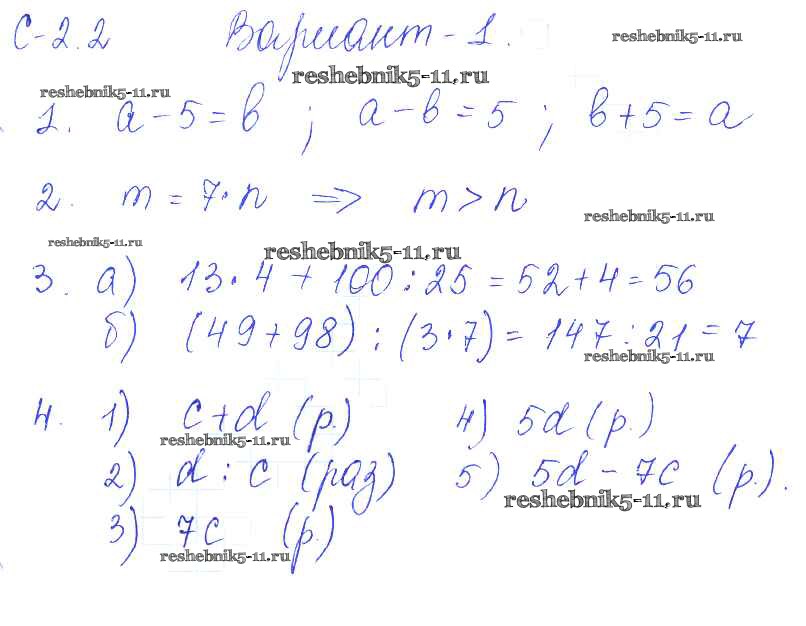 С-2.2 Вариант-1. reshebnik5-11.ru
reshebnik5-11.ru
reshebnik5-11.ru
1. a-5=b ; a-b=5 ; b+5=a
2. m=7·n => m>n
reshebnik5-11.ru
reshebnik5-11.ru
reshebnik5-11.ru
3. а) 13·4+100:25=52+4=56
б) (49+98):(3·7)=147:21=7
reshebnik5-11.ru
4. 1) c+d (р.) 4) 5d (р.)
reshebnik5-11.ru
2) d:c (раз) 5) 5d-7c (р.).
reshebnik5-11.ru
3) 7c (р.)
reshebnik5-11.ru